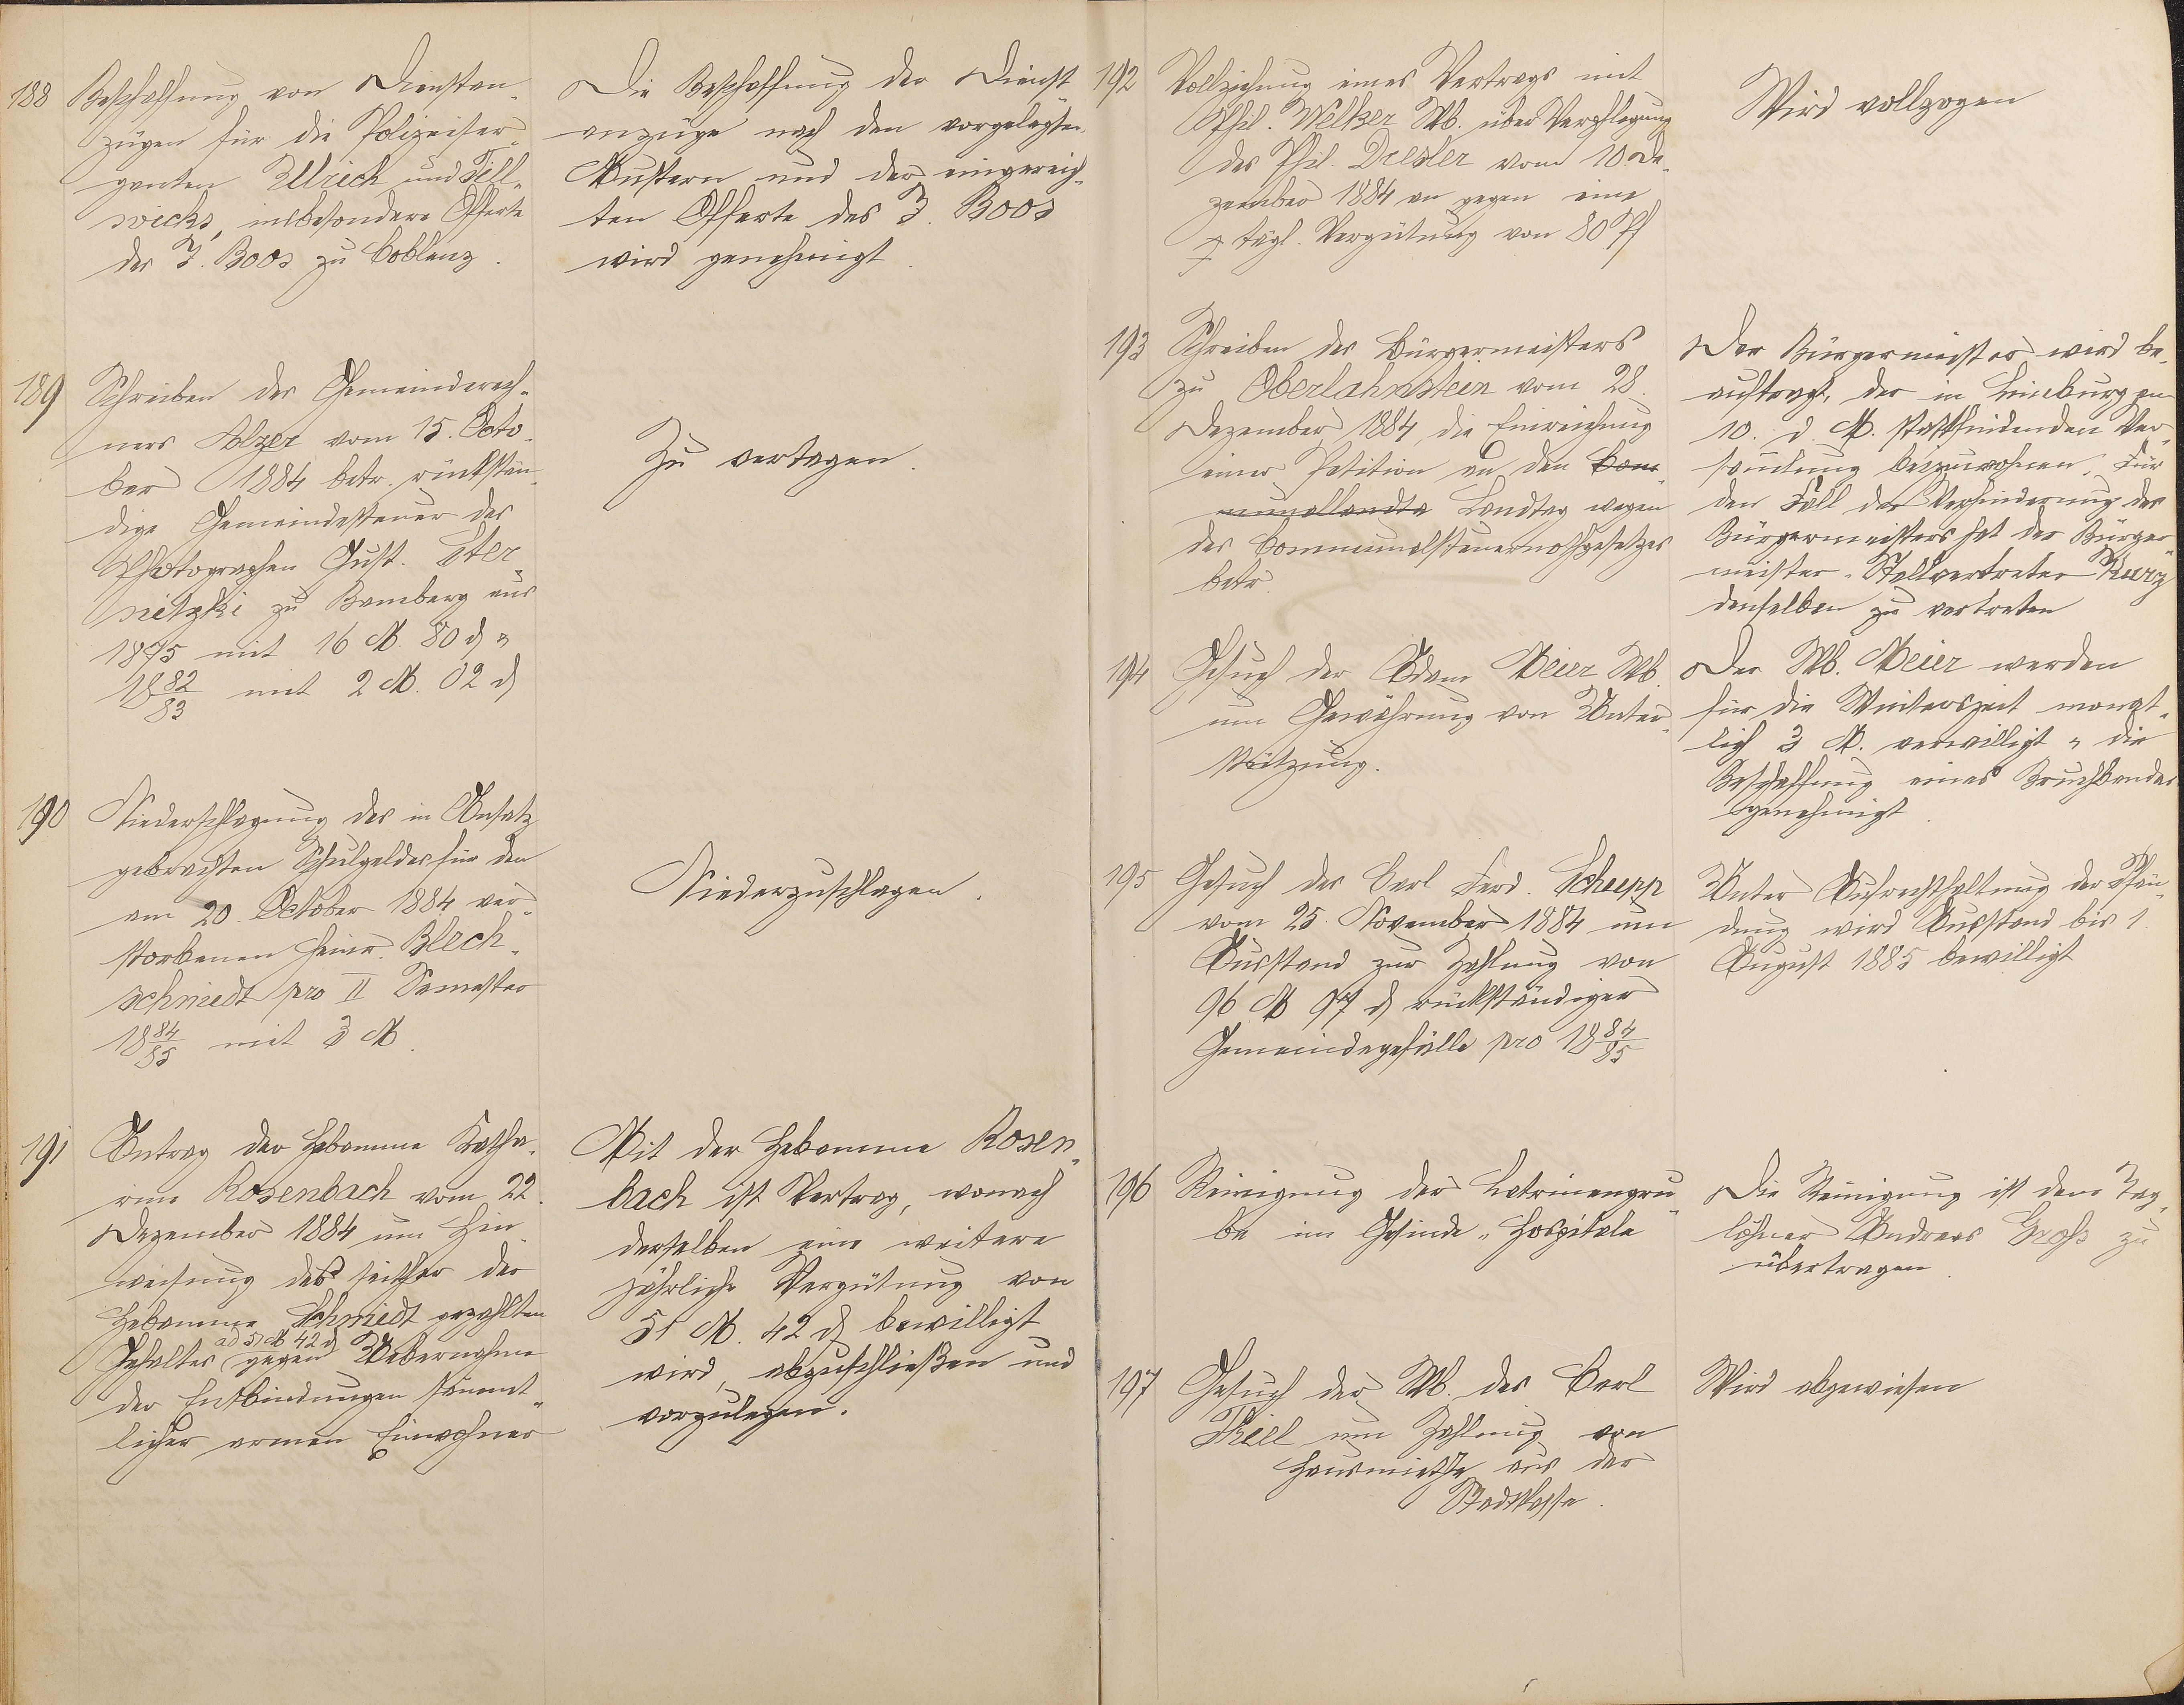 188
Beschaffung von Dienstan-
zügen für die Polizeiser-
genten Ullrich und Till-
wicks, insbesondere Offerte
des J. Boos zu Coblenz.
Die Beschaffung der Dienst
anzüge nach den vorgelegten
Mustern und der eingereich-
ten Offerte des J. Boos
wird genehmigt.
189
Schreiben des Gemeinderech-
ners Alzer vom 15. Octo-
ber 1884 betr. rückstän-
dige Gemeindesteuer des
Photographen Gust. Ster-
nitzki zu Bamberg aus
1875 mit 16 M. 80 d u
1882/83 mit 2 M. 02 d
Zu vertagen.
190
Niederschlagung des in Ansatz
gebrachten Schulgeldes für den
am 20. October 1884 ver-
storbenen Heinr. Blech-
schmiedt pro II Semester
1884/85 mit 3 M.
Niederzuschlagen.
191
Antrag der Hebamme Katha-
rina Rosenbach vom 22.
Dezember 1884 um Hin-
weisung des seither der
Hebamme Schmidt gezahlten
ad 51 M 42 d
Gehaltes gegen Uebernahme
der Entbindungen sämmt-
licher armen Einwohner
Mit der Hebamme Rosen-
bach ist Vertrag, wonach
derselben eine weitere
jährliche Vergütung von
51 M. 42 d bewilligt
wird, abzuschließen und
vorzulegen.
192
Vollziehung eines Vertrags mit
Phil. Welker Wb. über Verpflegung
des Phil. Dresler vom 10. De-
zember 1884 an gegen eine
tägl. Vergütung von 80 Pf
Wird vollzogen
193
Schreiben des Bürgermeisters
zu Oberlahnstein vom 28.
Dezember 1884 die Einreichung
einer Petition an den Com-
munallandta Landtag wegen
des Communalsteuernothgesetzes
betr.
Der Bürgermeister wird be-
auftragt, der in Limburg am
10. d. M. stattfindenden Ver-
samlung beizuwohnen. Für
den Fall der Verhinderung des
Bürgermeisters hat der Bürger-
meister-Stellvertreter Kurz
denselben zu vertreten
194
Gesuch der Adam Meier Wb.
um Gewährung von Unter-
stützung.
Der Wb. Meier werden
für die Winterszeit monat-
lich 3 M. verwilligt u die
Beschaffung eines Bruchbandes
genehmigt.
195
Gesuch des Carl Ferd. Schupp
vom 25. November 1884 um
Ausstand zur Zahlung von
96 M 97 d rückständiger
Gemeindegefälle pro 1884/85
Unter Aufrechthaltung der Pfän-
dung wird Ausstand bis 1.
August 1885 bewilligt
196
Reinigung der Latrinengru-
be im Gesinde-Hospitale
Die Reinigung ist dem Tag-
löhner Andreas Groß zu
übertragen.
197
Gesuch der Wb. des Carl
Thiel um Zahlung von
Hausmiethe aus der
Stadtkasse.
Wird abgewiesen